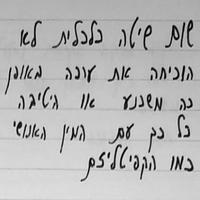 שום שיטה כלכלית לא
הוכיחה את ערכה באופן
כה משכנע או היטיבה
כל כך עם המין האנושי
כמו הקפיטליזם